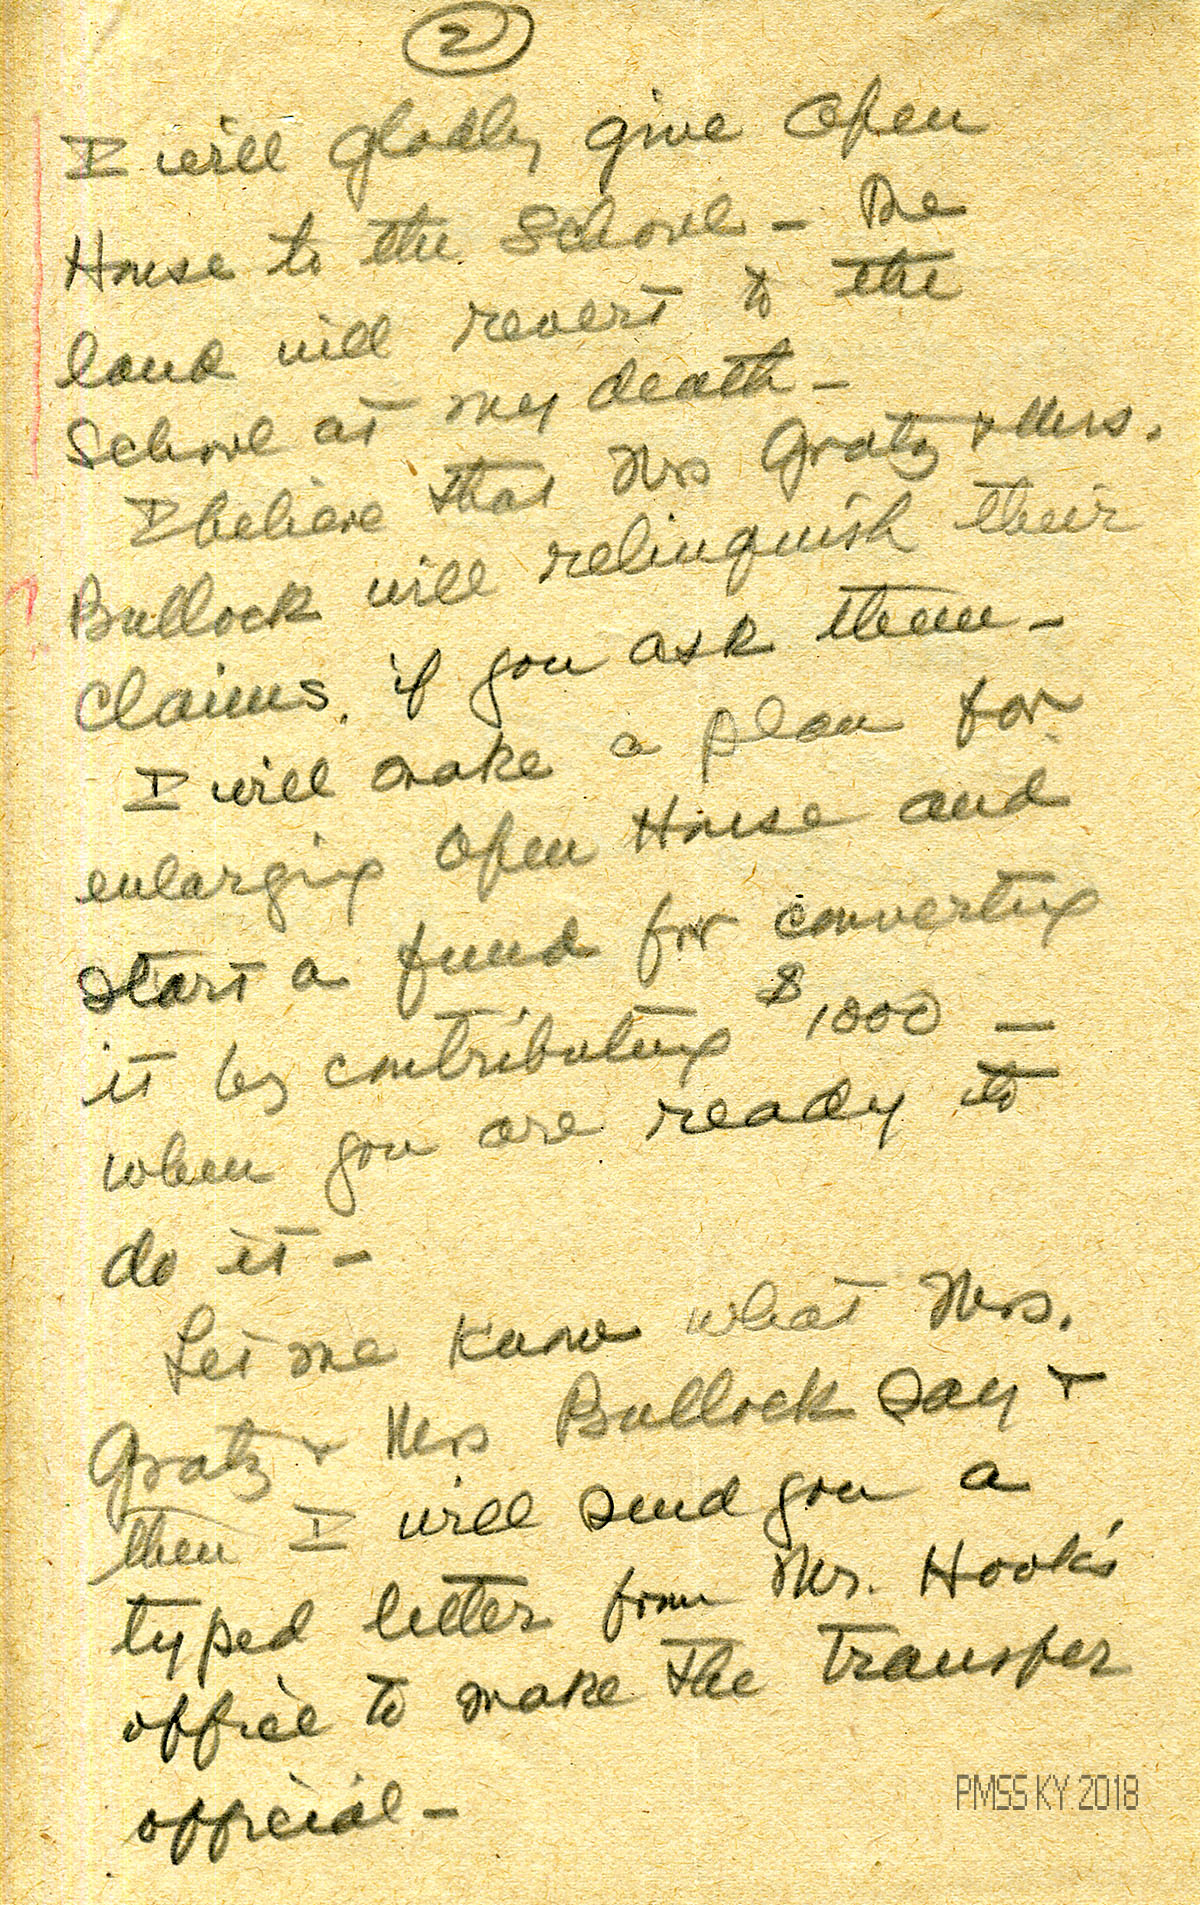 2
I will gladly give Open
House to the School – The
land will revert to the
School at my death –
I believe that Mrs Gratz & Mrs.
Bullock will relinquish their
claims, if you ask them –
I will make a plan for
enlarging Open House and
start a fund for converting
it by contributing $1000 –
when you are ready to
do it –
Let me know what Mrs.
Gratz & Mrs Bullock say &
then I will send you a
typed letter from Mr. Hook's
office to make the transfer
official –
PMSS KY 2018